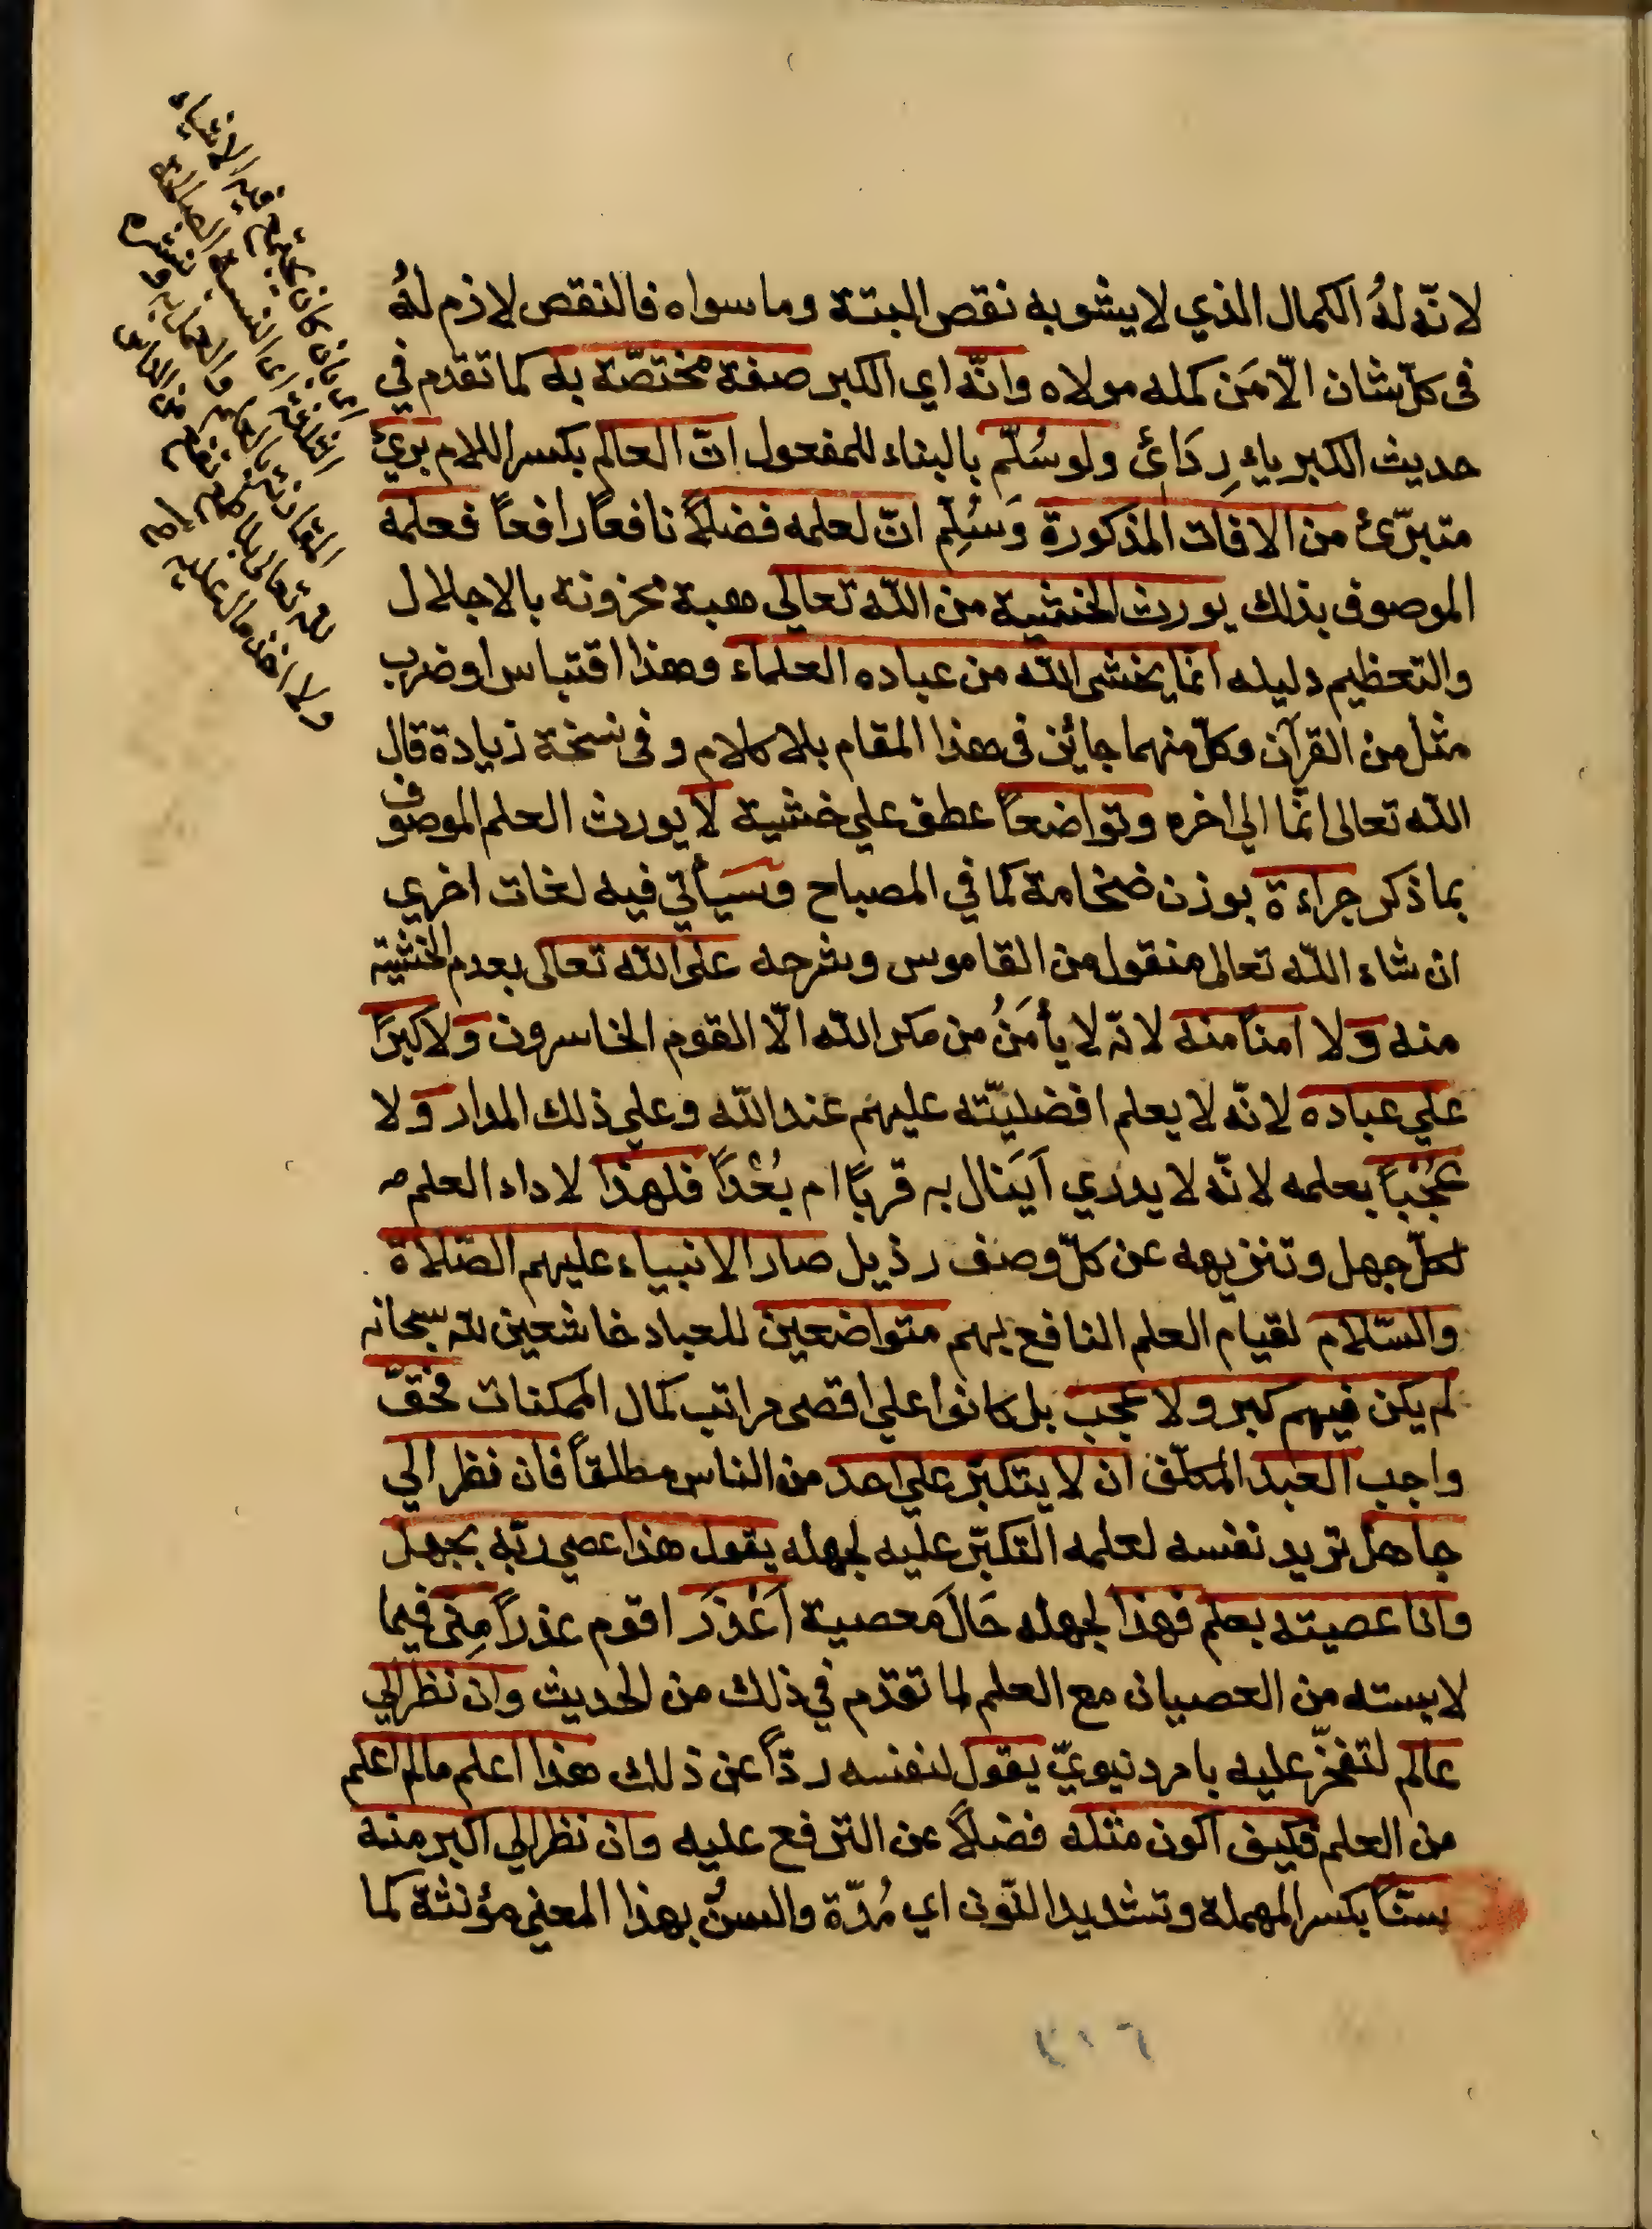 لانّه لهُ الكمال الذي لا يشوبه نقص البتة وما سواه فالنقص لازم لهُ
فى كلّ شان الّا مَن كمله مولاه وانّه اي الكبر صفة مختصّة به كما تقدم في
حديث الكبرياء رِدَائى ولو سُلّم بالبناء للمفعول انّ العالم بكسر اللام برئ
متبرّئ من الافات المذكورة وَسُلِّم انّ لعلمه فضلاً نافعاً رافعاً فعلمه
الموصوف بذلك يورث الخشية من الله تعالي هيبة مخزونة بالاجلال
والتعظيم دليله انما يخشى الله من عباده العلماء وهذا اقتباس او ضرب
مثل من القرآن وكلّ منهما جائز فى هذا المقام بلا كلام و فى نسخة زيادة قال
الله تعالى انّما الي اخره وتواضعاً عطف علي خشية لا يورث العلم الموصوف
بما ذكر جراءة بوزن ضخامة كما في المصباح وسيأتي فيه لغات اخري
ان شاء اللّه تعالى منقول من القاموس وشرحه على الله تعالى بعدم الخشية
منه ولا امناً منه لانّه لا يأمَنُ من مكر الله الّا القوم الخاسرون ولا كبرًا
علي عباده لانّه لا يعلم افضليّته عليهم عند اللّه وعلي ذلك المدار ولا
عُجْباً بعلمه لانّه لا يدري اَيَنال به قربًا ام بُعْداً فلهذا لاداء العلم
لكلّ جهل وتنزيهه عن كلّ وصف رذيل صار الانبياء عليهم الصّلاة
والسّلام لقيام العلم النافع بهم متواضعين للعباد خاشعين للّه سبحانه
لم يكن فيهم كبر ولا عجب بل كانوا علي اقصى مراتب كمال الممكنات فحقّ
واجب العبد المكلّف ان لا يتكبّر علي احد من الناس مطلقاً فان نظر الي
جاهل تريد نفسه لعلمه التكبّر عليه لجهله يقول هذا عصي ربّه بجهل
وانا عصيته بعلم فهذا لجهله حَالَ معصية اَعْذَرَ اقوم عذراً مِنّى فيما
لابسته من العصيان مع العلم لما تقدّم في ذلك من الحديث وان نظر الي
عالم لتفخّر عليه بامر دنيويّ يقول لنفسه ردّاً عن ذلك هذا اعلم ما لم اعلم
من العلم فكيف اكون مثله فضلاً عن الترفع عليه وان نظر الي اكبر منه
سنّا بكسر المهملة وتشديد النّون اي مُدّة والسنّ بهذا المعني مؤنثة كما
اى بان كان يجتمع فيه الاشياء